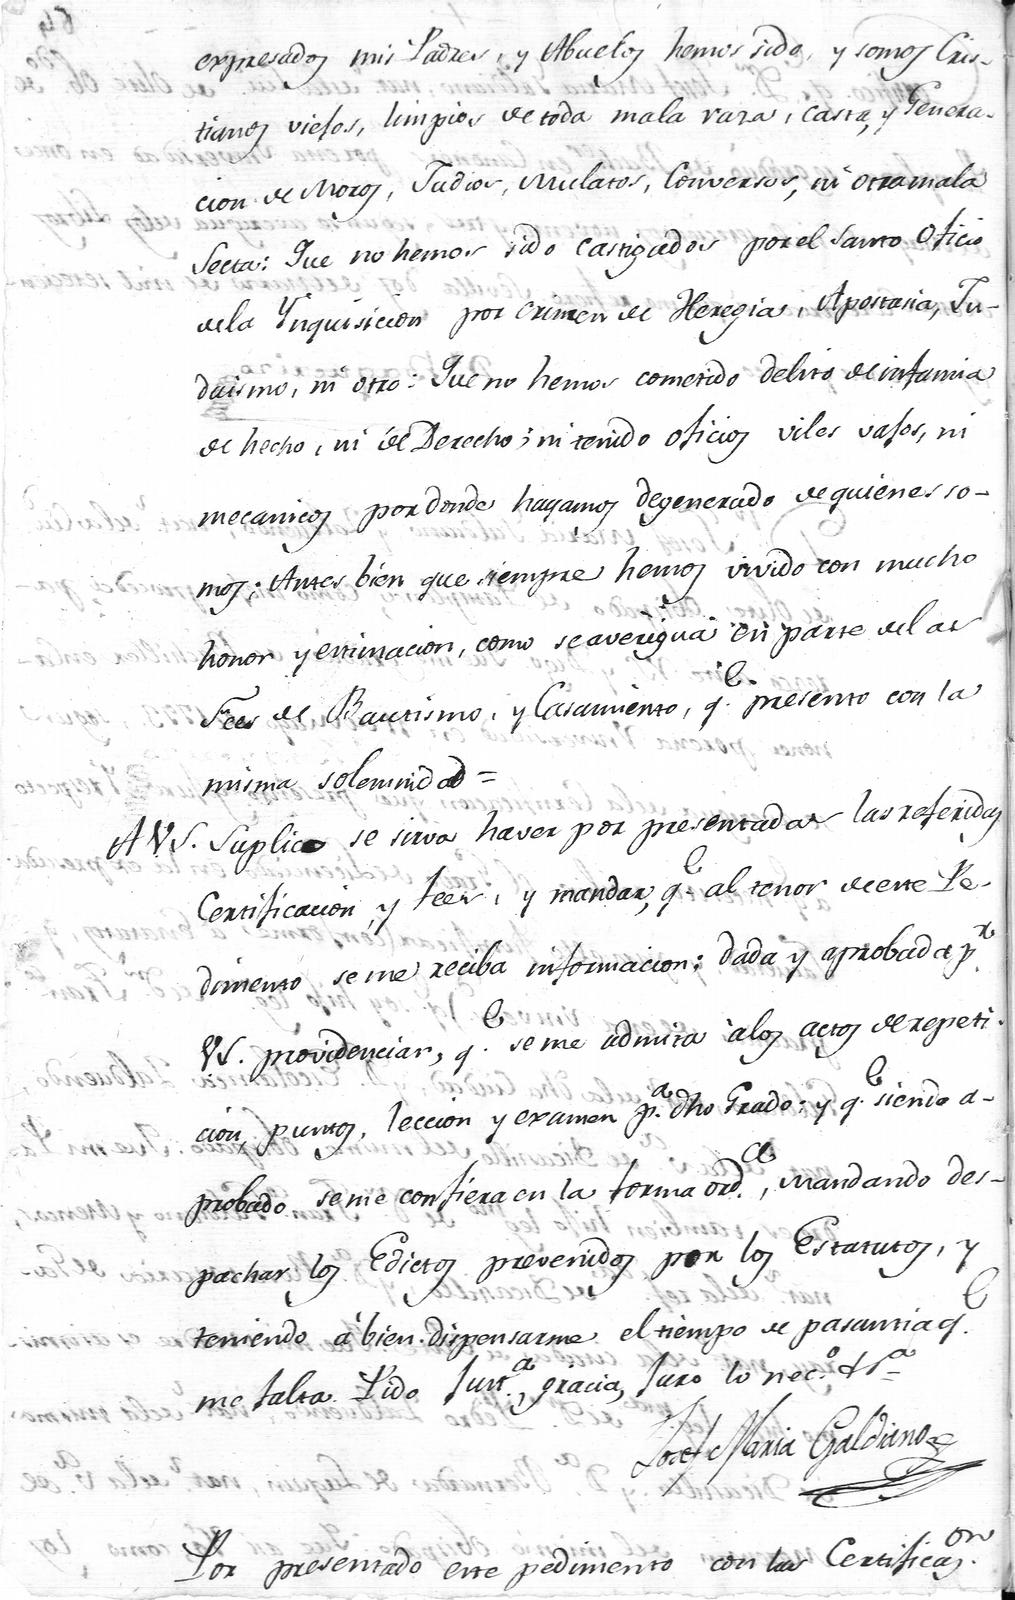 expresados mis Padres, y Abuelos hemos sido, y somos Cris-
tianos viejos, limpios de toda mala raza, casta, y Genera-
cion de Moros, Judios, Mulatos, Conversos, ni otra mala
Secta: Que no hemos sido castigados por el Santo Oficio
de la Ynquisicion por crimen de Heregia, Apostasia, Ju-
daismo, ni otro: Que no hemos cometido delito de infamia
de hecho, ni de Derecho; ni tenido oficios viles vajos, ni
mecanicos por donde hayamos degenerado de quienes so-
mos; Antes bien que siempre hemos vivido con mucho
honor y estimacion, como se averigua en parte de las
Fees de Bautismo, y Casamiento, q.e presento con la
misma solemnidad =
A VS. Suplico se sirva haver por presentadas las referidas
Certificacion y fees, y mandar, q.e al tenor de este Pe-
dimento se me reciba informacion; dada y aprobada p.r
VS. providenciar, q.e se me admita à los actos de repeti-
cion, puntos, leccion y examen p.a dho Grado: y q.e siendo a-
probado se me confiera en la forma ord.a, mandando des-
pachar los Edictos prevenidos por los Estatutos, y
teniendo à bien dispensarme el tiempo de pasantia q.e
me falta. Pido Just.a, gracia, Juro lo nec.o &.a =
Josef Maria Galdiano
Por presentado este pedimento con las Certificas.on